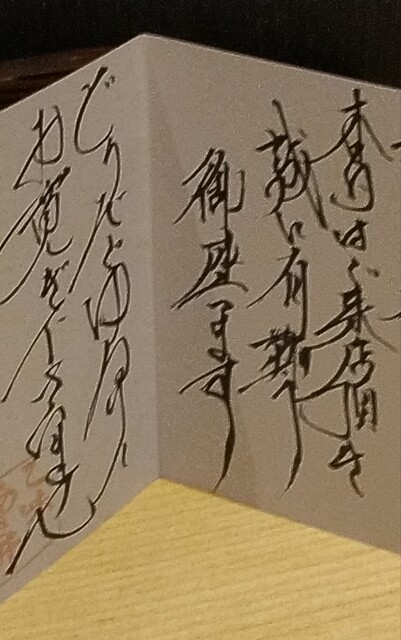 本日はご来店頂き
誠に有難う
御座います
どうぞごゆるりと
お寛ぎ下さいませ